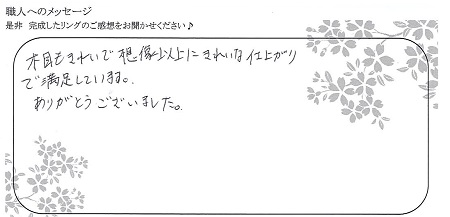 職人へのメッセージ
是非 完成したリングのご感想をお聞かせください♪
木目もきれいで想像以上にきれいな仕上がり
で満足しています。
ありがとうございました。